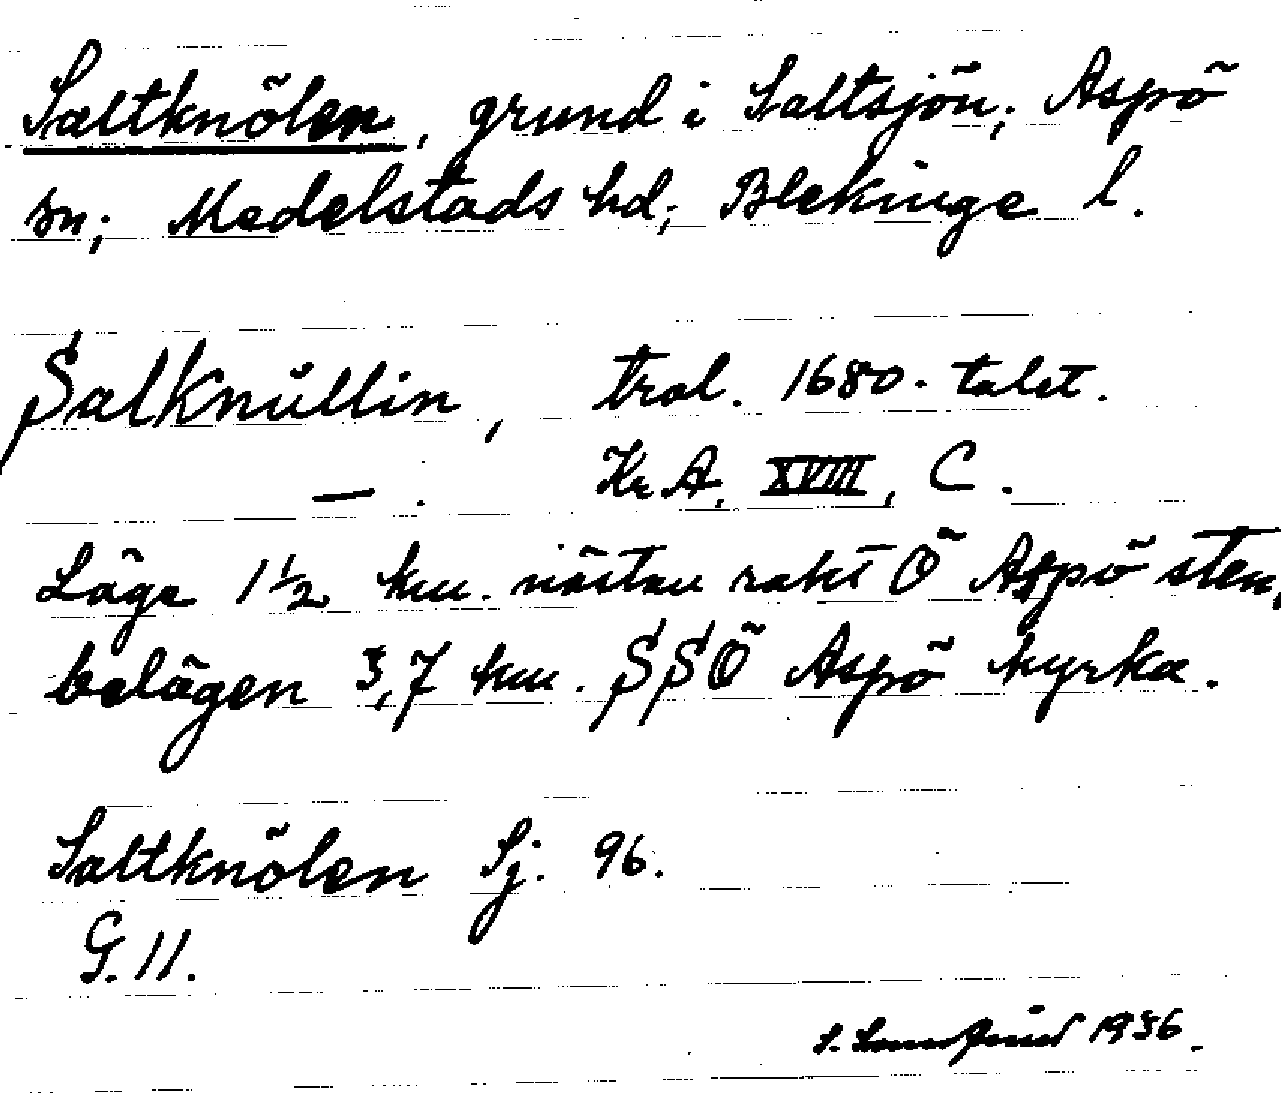 Saltknölen, grund i Saltsjön; Aspö
sn; Medelstads hd; Blekinge l.
Salknüllin, trol. 1680-talet.
— . Kr.A. XVIII, C.
Läge 1 1/2 km. nästan rakt Ö Aspö sten,
belägen 3,7 km. SSÖ Aspö kyrka.
Saltknölen Sj. 96.
G. 11.
S. 1936.